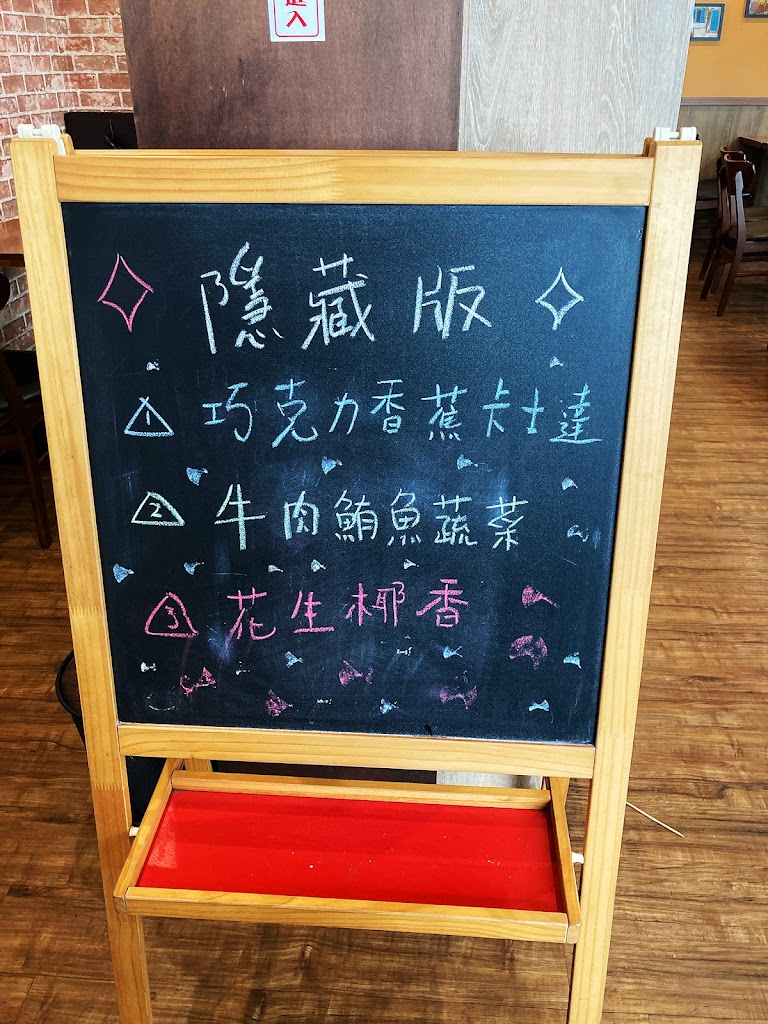 入
隱藏版
1 巧克力香蕉卡士達
2 牛肉鮪魚蔬菜
3 花生椰香